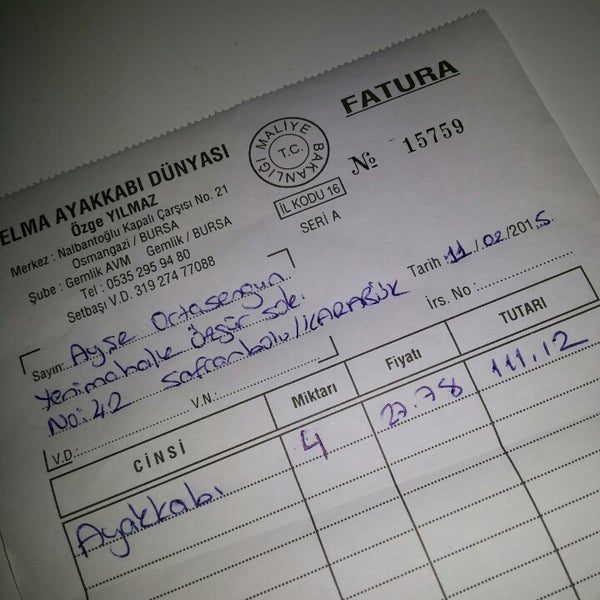 FATURA
ELMA AYAKKABI DÜNYASI
Özge YILMAZ
Merkez : Nalbantoğlu Kapalı Çarşısı No. 21
Osmangazi / BURSA
Şube : Gemlik AVM Gemlik / BURSA
Tel : 0535 295 94 80
Setbaşı V.D. 319 274 77088
MALİYE BAKANLIĞI
T.C.
İL KODU 16
SERİ A
№ 15759
Sayın: Ayşe Ortasengun
Yenimahale Özgür sok.
No: 42 Safranbolu/KARABÜK
Tarih : 11/02/2015
İrs. No :
V.D.: V.N.:
CİNSİ Miktarı Fiyatı TUTARI
Ayakkabı 4 27.78 111.12